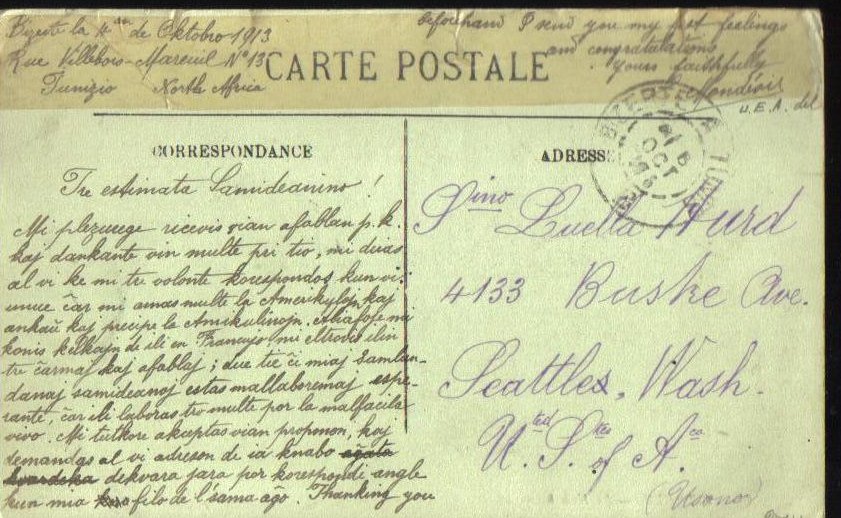 Bizerte la 4an de Oktobro 1913
Rue Villebois-Mareuil No 13
Tunizio North Africa
CARTE POSTALE
CORRESPONDANCE
Tre estimata Samideanino!
Mi plezurege ricevis vian afablan p.k.
kaj dankante vin multe pri tio, mi diras
al vi ke mi tre volonte korespondos kun vi:
unue ĉar mi amas multe la Amerikylojn kaj
ankaŭ kaj precipe la Amikulinojn. Aliafoje mi
konis kelkajn de ili en Francujo mi eltrovis ilin
tre ĉarmaj kaj afablaj; due tie ĉi miaj samlan-
danaj samideanoj estas mallaboremaj espe-
rante, ĉar ili laboras tro multe por la malfacila
vivo. Mi tutkore akceptas vian proponon, kaj
demandas al vi adreson de ia knabo
dekvara jara por korespondi angle
kun mia filo de l'sama aĝo. Thanking you
beforehand I send you my best feelings
and congratulations
Yours faithfully
U.E.A. del
ADRESSE
Sino Luella Hurd
4133 Burke Ave.
Seattle, Wash.
U.ted S.tes of A.ca
(Usono)